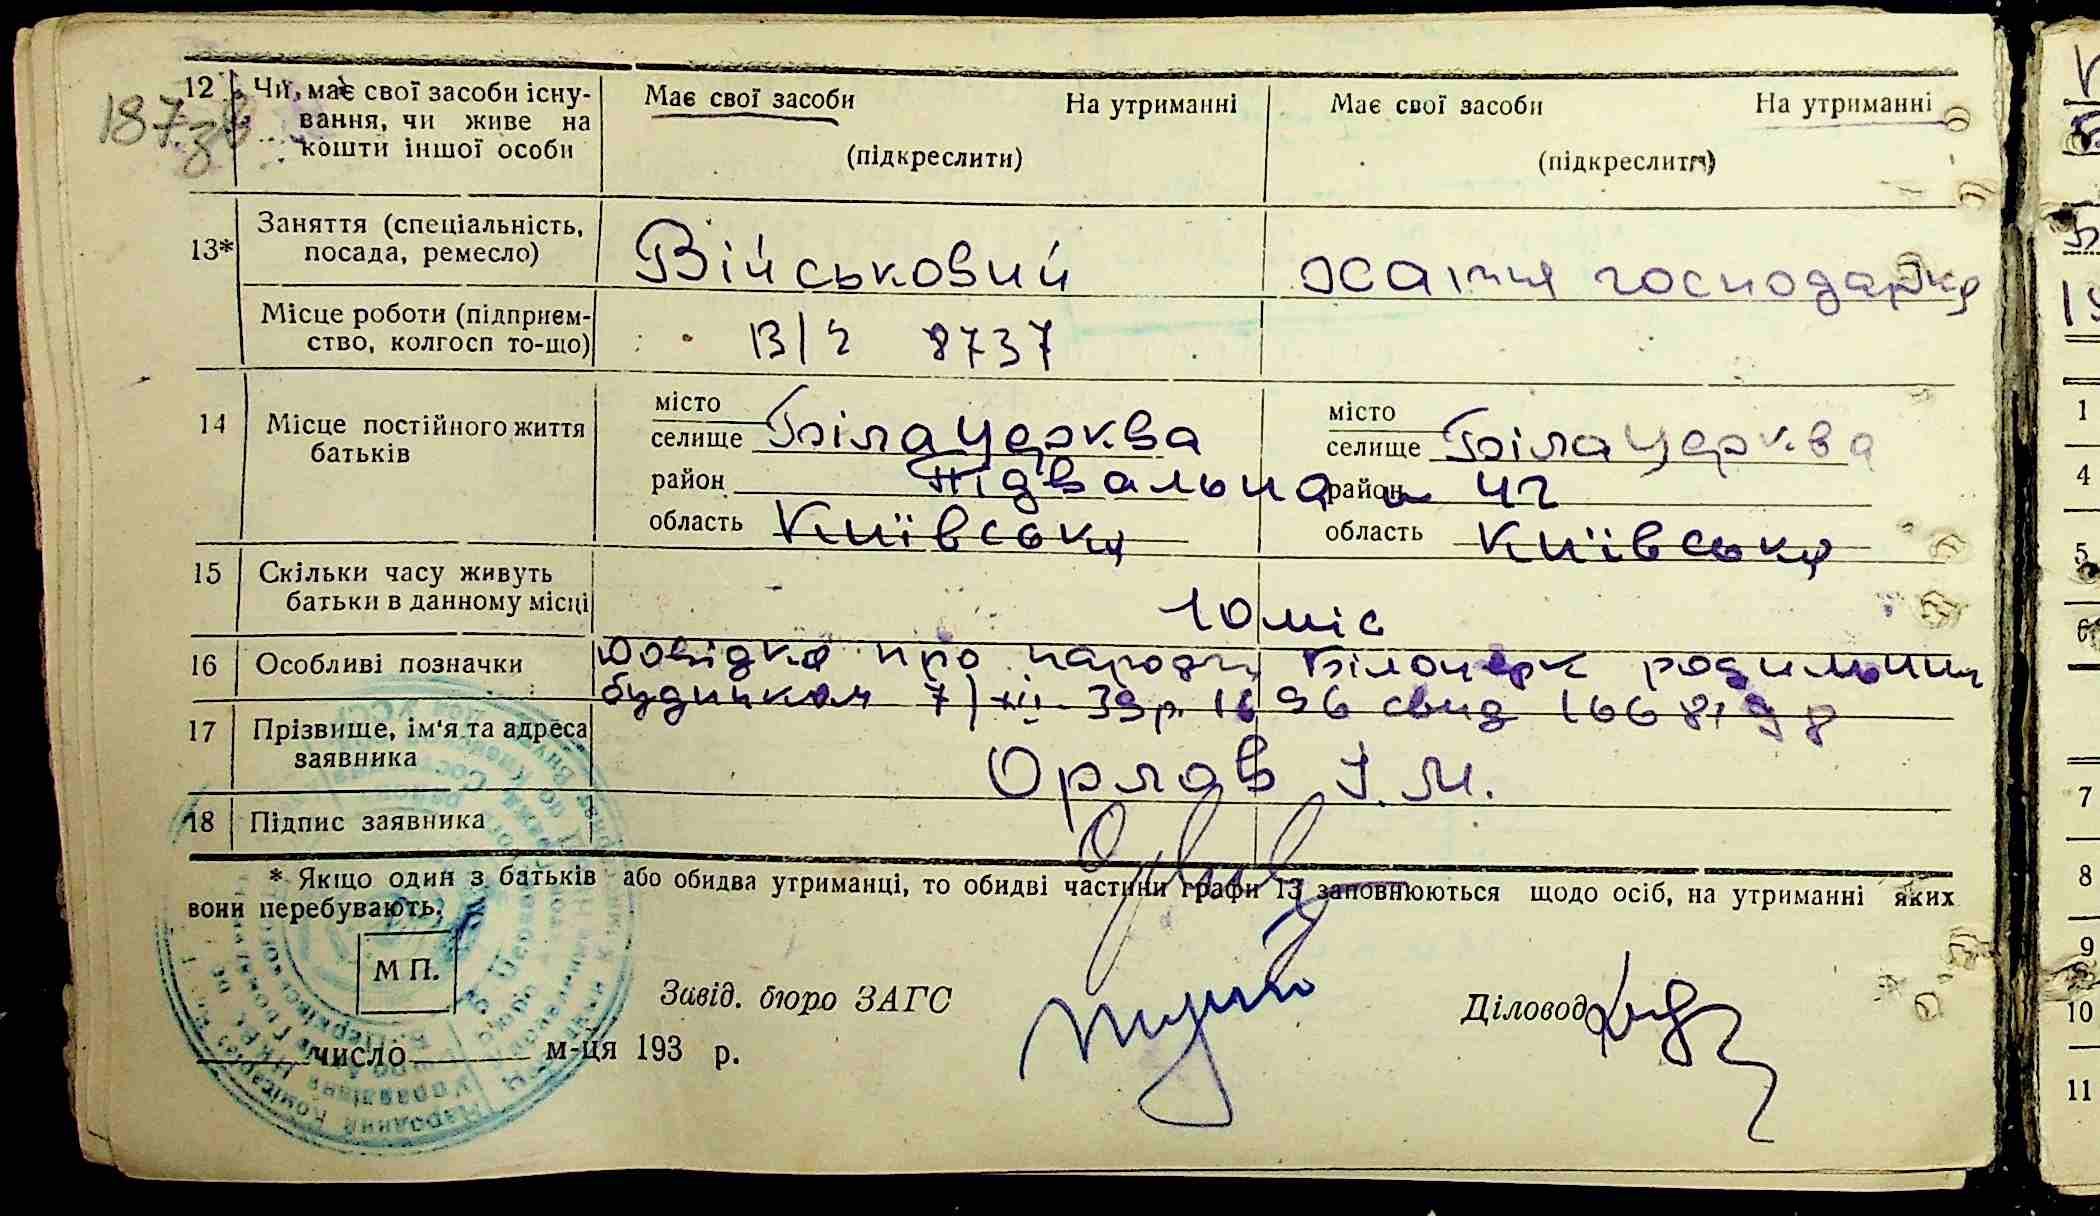 187 зв
12 Чи має свої засоби існу- Має свої засоби На утриманні Має свої засоби На утриманні
вання, чи живе на
кошти іншої особи (підкреслити) (підкреслити)
13* Заняття (спеціальність,
посада, ремесло) Військовий хатня господарка
Місце роботи (підприєм-
ство, колгосп то-що) В/ч 8737
14 Місце постійного життя
батьків
місто
селище Біла Церква місто селище Біла Церква
район Підвальна район 42
область Київська область Київська
15 Скільки часу живуть
батьки в данному місці 10 міс
16 Особливі позначки Довідка про народж Білоцерк родильним
будинком 7/XII-39р 1696 свид
17 Прізвище, ім'я та адреса
заявника Орлов І. М.
18 Підпис заявника
* Якщо один з батьків або обидва утриманці, то обидві частини графи 13 заповнюються щодо осіб, на утриманні яких
вони перебувають.
М П.
Завід. бюро ЗАГС Діловод
число м-ця 193 р.
1
4
5
6
7
8
9
10
11